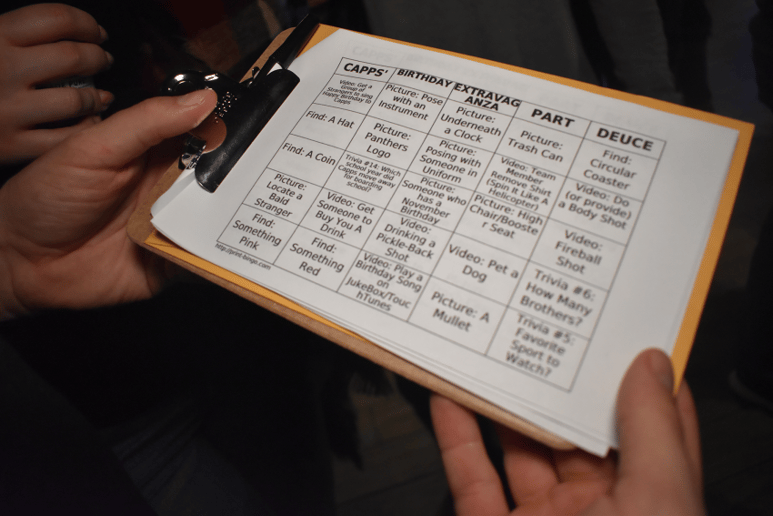 CAPPS'
BIRTHDAY
EXTRAVAG
ANZA
PART
DEUCE
Video: Get a
Group of
Strangers to sing
Happy Birthday to
Capps
Picture: Pose
with an
Instrument
Picture:
Underneath
a Clock
Picture:
Trash Can
Find:
Circular
Coaster
Find: A Hat
Picture:
Panthers
Logo
Picture:
Posing with
Someone in
Uniform
Video: Team
Member
Remove Shirt
(Spin It Like A
Helicopter)
Video: Do
(or provide)
a Body Shot
Find: A Coin
Trivia #14: Which
school year did
Capps move away
for boarding
school?
Picture:
Someone who
has a
November
Birthday
Picture: High
Chair/Booste
r Seat
Video:
Fireball
Shot
Picture:
Locate a
Bald
Stranger
Video: Get
Someone to
Buy You A
Drink
Video:
Drinking a
Pickle-Back
Shot
Video: Pet a
Dog
Trivia #6:
How Many
Brothers?
Find:
Something
Pink
Find:
Something
Red
Video: Play a
Birthday Song
on
JukeBox/Touc
hTunes
Picture: A
Mullet
Trivia #5:
Favorite
Sport to
Watch?
http://print-bingo.com